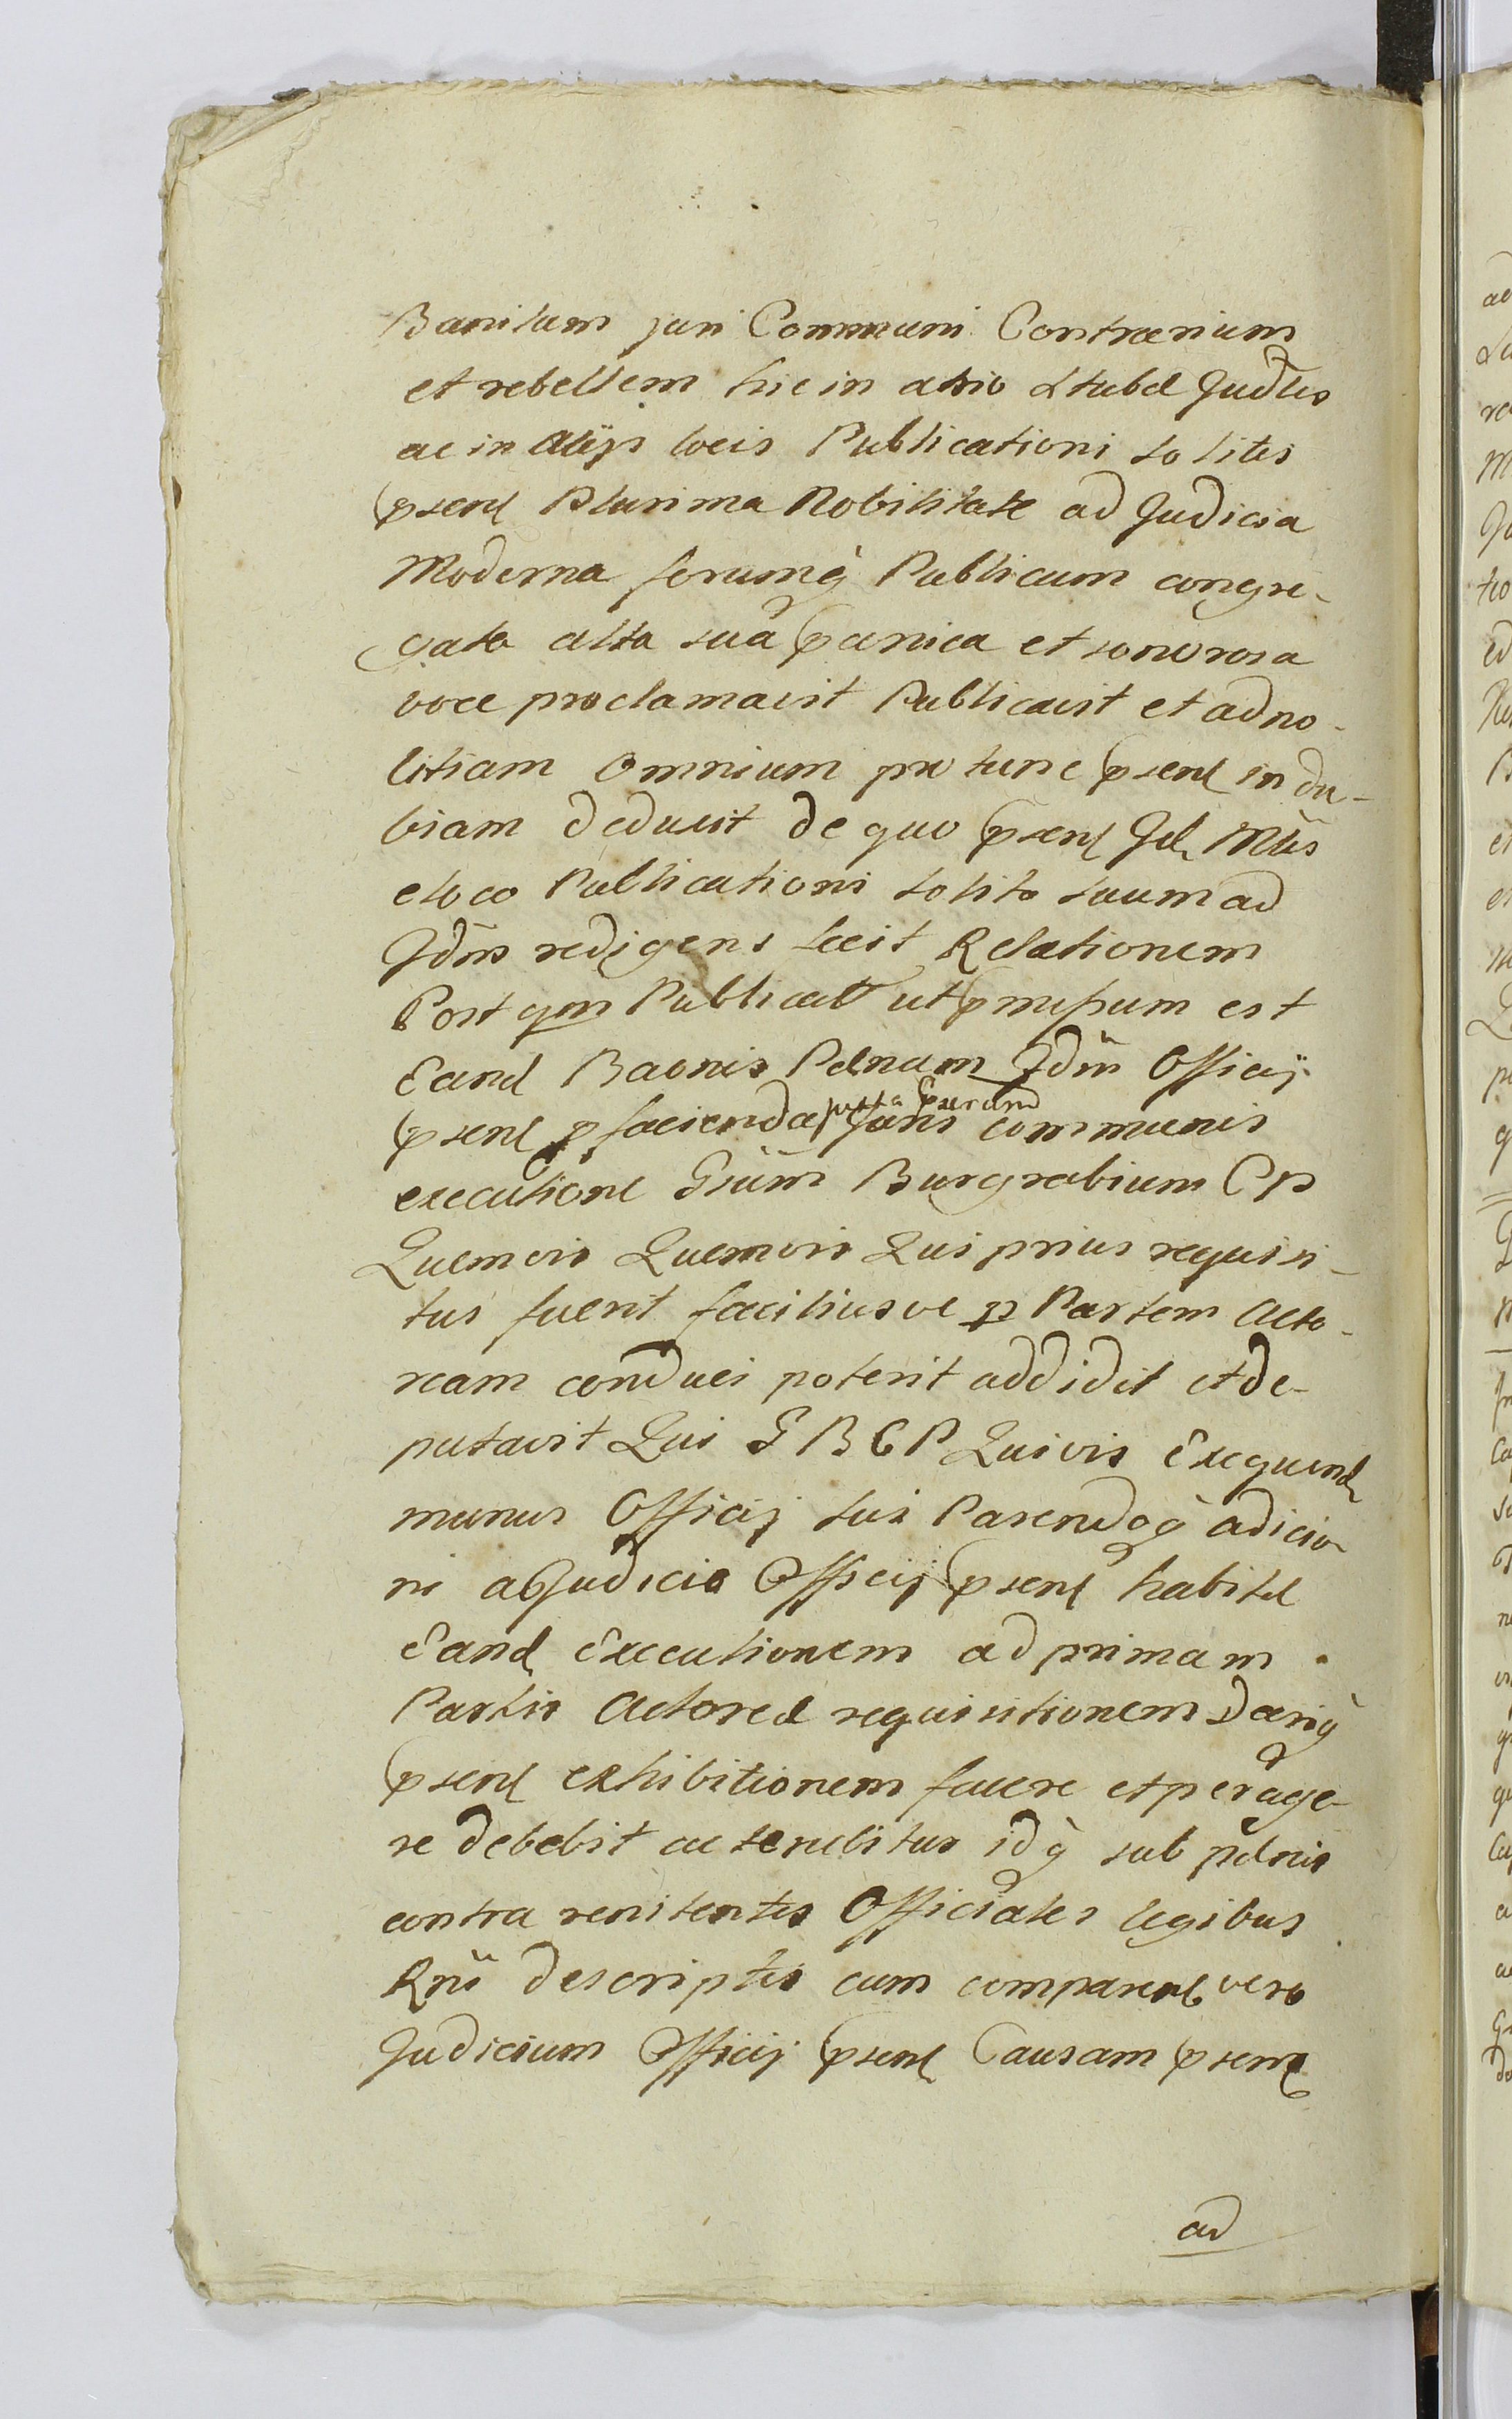 Banitum juri Communi Contrarium
et rebellem hic in atrio Stubæ Judłis
ac in alijs locis Publicationi solitis
psent Plurima Nobilitate ad Judicia
Moderna forumq̀ Publicum congre-
gata alta sua panica et sonorosa
voce proclamavit Publicavit et ad no-
titiam omnium pro tunc psent indu-
biam deduxit de quo psent Jud Mtis
e loco Publicationi solito suum ad
Jdm redigens fecit Relationem
Post qm Publicat ut pmissum est
Eand Baonis Pænam Jdm Officij
psent p facienda juxta Juris communis
executione Gsum Burgrabium CP
Quemvis Quemvis Qui prius requisi-
tus fuerit faciliusve p Partem Acto-
ream conduci poterit addidit et de-
putavit Qui G B C P Quivis Exequend
munus Officij sui Parendoq̀ adicio
ni a Judicio Officij psent habitæ
Eand Executionem ad primam
Partis Actoreæ requisitionem Dariq̀
psent exhibitionem facere et perage-
re debebit ac tenebitur idq̀ sub pænis
contra renitentes Officiales legibus
Rni descriptis cum comparent vero
Judicium Officij psent Causam psent
ad